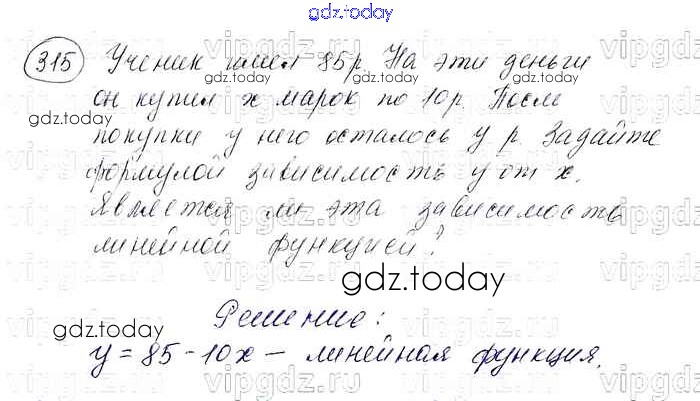 gdz.today
315 Ученик имел 85р. На эти деньги
gdz.today gdz.today
он купил x марок по 10р. После
gdz.today
покупки у него осталось y р. Задайте
формулой зависимость y от x.
Является ли эта зависимость
линейной функцией?
gdz.today
Решение:
gdz.today gdz.today
y = 85 - 10x — линейная функция.
vipgdz.ru